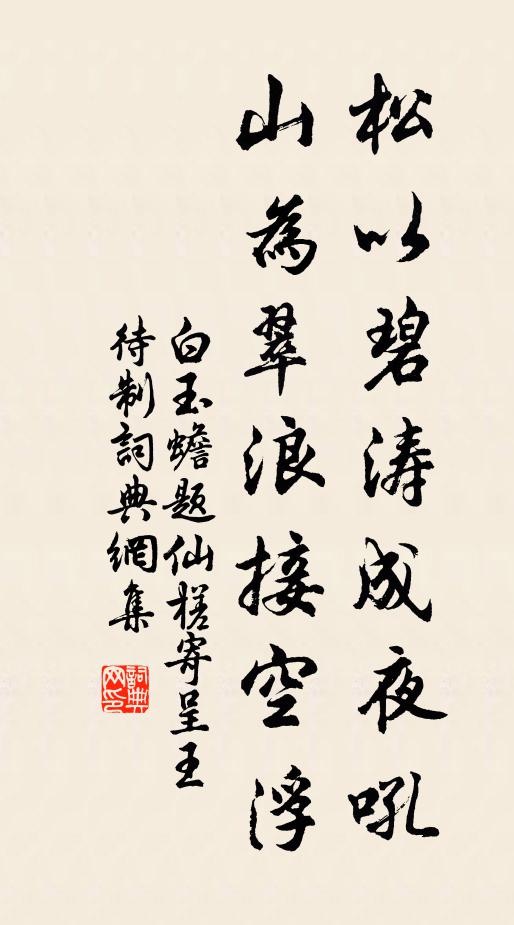 松以碧涛成夜吼
山為翠浪接空浮
白玉蟾题仙槎寄呈王
待制詞典網集
詞典网印